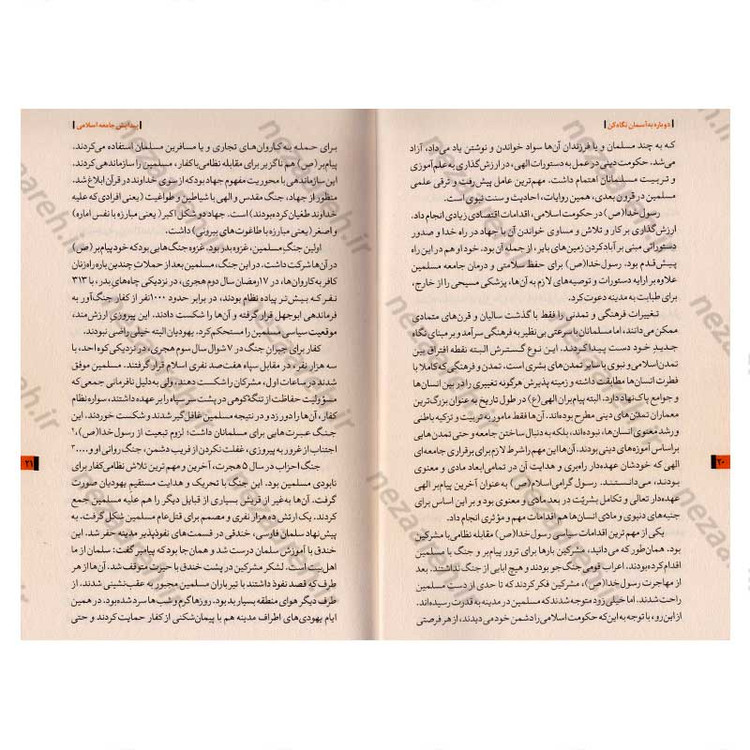 دوباره به آسمان نگاه کن
که به چند مسلمان و یا فرزندان آن‌ها سواد خواندن و نوشتن یاد می‌داد، آزاد
می‌شد. حکومت دینی در عمل به دستورات الهی، در ارزش‌گذاری به علم‌آموزی
و تربیت مسلمانان اهتمام داشت. مهم‌ترین عامل پیش‌رفت و ترقی علمی
مسلمین در قرون بعدی، همین روایات، احادیث و سنت نبوی است.
رسول خدا(ص) در حکومت اسلامی، اقدامات اقتصادی زیادی انجام داد.
ارزش‌گذاری بر کار و تلاش و مساوی خواندن آن با جهاد در راه خدا و صدور
دستوراتی مبنی بر آباد کردن زمین‌های بایر، از جمله آن بود. خود او هم در این راه
پیش‌قدم بود. رسول خدا(ص) برای حفظ سلامتی و درمان جامعه مسلمین
علاوه بر ارایه دستورات و توصیه‌های لازم به آن‌ها، پزشکی مسیحی را از خارج،
برای طبابت به مدینه دعوت کرد.
تغییرات فرهنگی و تمدنی را فقط با گذشت سالیان و قرن‌های متمادی
ممکن می‌دانند، اما مسلمانان با سرعتی بی‌نظیر به فرهنگی سرآمد و بر مبنای نگاه
جدید خود دست پیدا کردند. این نوع گسترش البته نقطه افتراق بین
تمدن اسلامی و نبوی با سایر تمدن‌های بشری است، تمدن و فرهنگی که کاملا با
فطرت انسان‌ها مطابقت داشته و زمینه پذیرش هرگونه تغییری را در بین انسان‌ها
و جوامع پاک نهاد دارد. البته پیامبران الهی(ع) در طول تاریخ به عنوان بزرگ‌ترین
معماران تمدن‌های دینی مطرح بوده‌اند. آن‌ها فقط مامور به تربیت و تزکیه باطنی
و رشد معنوی انسان‌ها، نبوده‌اند، بلکه به دنبال ساختن جامعه و حتی تمدن‌هایی
براساس آموزه‌های دینی بودند. آن‌ها این مهم را شرط لازم برای برقراری جامعه‌ای
الهی که خودشان عهده‌دار راه‌بری و هدایت آن در تمامی ابعاد مادی و معنوی
بودند، می‌دانستند. رسول گرامی اسلام(ص) به عنوان آخرین پیامبر الهی
عهده‌دار تعالی و تکامل بشریت در بعد مادی و معنوی بود و بر این اساس برای
جنبه‌های دنیوی و مادی انسان‌ها هم اقدامات مهم و مؤثری انجام داد.
یکی از مهم‌ترین اقدامات سیاسی رسول خدا(ص)، مقابله نظامی با مشرکین
بود. همان‌طور که می‌دانید، مشرکین بارها برای ترور پیامبر و جنگ با مسلمین
اقدام کرده بودند. اعراب قومی جنگ‌جو بودند و هیچ ابایی از جنگ نداشتند. بعد
از مهاجرت رسول خدا(ص)، مشرکین فکر کردند که تا حدی از دست مسلمین
راحت شدند. اما خیلی زود متوجه شدند که مسلمین در مدینه به قدرت رسیده‌اند.
از این رو، با توجه به این که حکومت اسلامی را دشمن خود می‌دیدند، از هر فرصتی
۲۰
پیدایش جامعه اسلامی
برای حمله به کاروان‌های تجاری و یا مسافرین مسلمان استفاده می‌کردند.
پیامبر(ص) هم ناگزیر برای مقابله نظامی با کفار، مسلمین را سازماندهی کردند.
این سازماندهی با محوریت مفهوم جهاد بود که از سوی خداوند در قرآن ابلاغ شد.
منظور از جهاد، جنگ مقدس و الهی با شیاطین و طواغیت (یعنی افرادی که علیه
خداوند طغیان کرده بودند) است. جهاد دو شکل اکبر (یعنی مبارزه با نفس اماره)
و اصغر (یعنی مبارزه با طاغوت‌های بیرونی) داشت.
اولین جنگ مسلمین، غزوه بدر بود. غزوه جنگ‌هایی بود که خود پیامبر(ص)
در آن‌ها شرکت داشت. در این جنگ، مسلمین بعد از حملات چندین باره راه‌زنان
کافر به کاروان‌ها، در ۱۷ رمضان سال دوم هجری، در نزدیکی چاه‌های بدر، با ۳۱۳
نفر که بیش‌تر پیاده نظام بودند، در برابر حدود ۱۰۰۰ نفر از کفار جنگ‌آور به
فرماندهی ابوجهل قرار گرفته و آن‌ها را شکست دادند. این پیروزی ارزش‌مند،
موقعیت سیاسی مسلمین را مستحکم کرد. یهودیان البته خیلی راضی نبودند.
کفار برای جبران جنگ در ۷ شوال سال سوم هجری، در نزدیکی کوه احد، با
سه هزار نفر، در مقابل سپاه هفت‌صد نفری اسلام قرار گرفتند. مسلمین موفق
شدند در ساعات اول، مشرکان را شکست دهند، ولی به دلیل نافرمانی جمعی که
مسؤولیت حفاظت از تنگه کوهی در پشت سر سپاه را بر عهده داشتند، سواره نظام
کفار، آن‌ها را دور زد و در نتیجه مسلمین غافل‌گیر شدند و شکست خوردند. این
جنگ عبرت‌هایی برای مسلمانان داشت؛ لزوم تبعیت از رسول خدا(ص)،
اجتناب از غرور به پیروزی، غفلت نکردن از فریب دشمن، جنگ روانی او و....
جنگ احزاب در سال ۵ هجرت، آخرین و مهم‌ترین تلاش نظامی کفار برای
نابودی مسلمین بود. این جنگ با تحریک و هدایت مستقیم یهودیان صورت
گرفت. آن‌ها به غیر از قریش بسیاری از قبایل دیگر را هم علیه مسلمین جمع
کردند. یک ارتش ده هزار نفری و مصمم برای قتل‌عام مسلمین شکل گرفت. به
پیش‌نهاد سلمان فارسی، خندقی در قسمت‌های نفوذپذیر مدینه حفر شد. این
خندق با آموزش سلمان درست شد و همان‌جا بود که پیامبر گفت: سلمان از ما
اهل بیت است. لشکر مشرکین در پشت خندق با حیرت متوقف شد. آن‌ها از هر
طرف که قصد نفوذ داشتند با تیرباران مسلمین مجبور به عقب‌نشینی شدند. از
طرف دیگر هوای منطقه بسیار بد بود. روزها گرم و شب‌ها سرد شده بود. در همین
ایام یهودی‌های اطراف مدینه هم با پیمان‌شکنی از کفار حمایت کردند و حتی
۲۱
nezaareh.ir